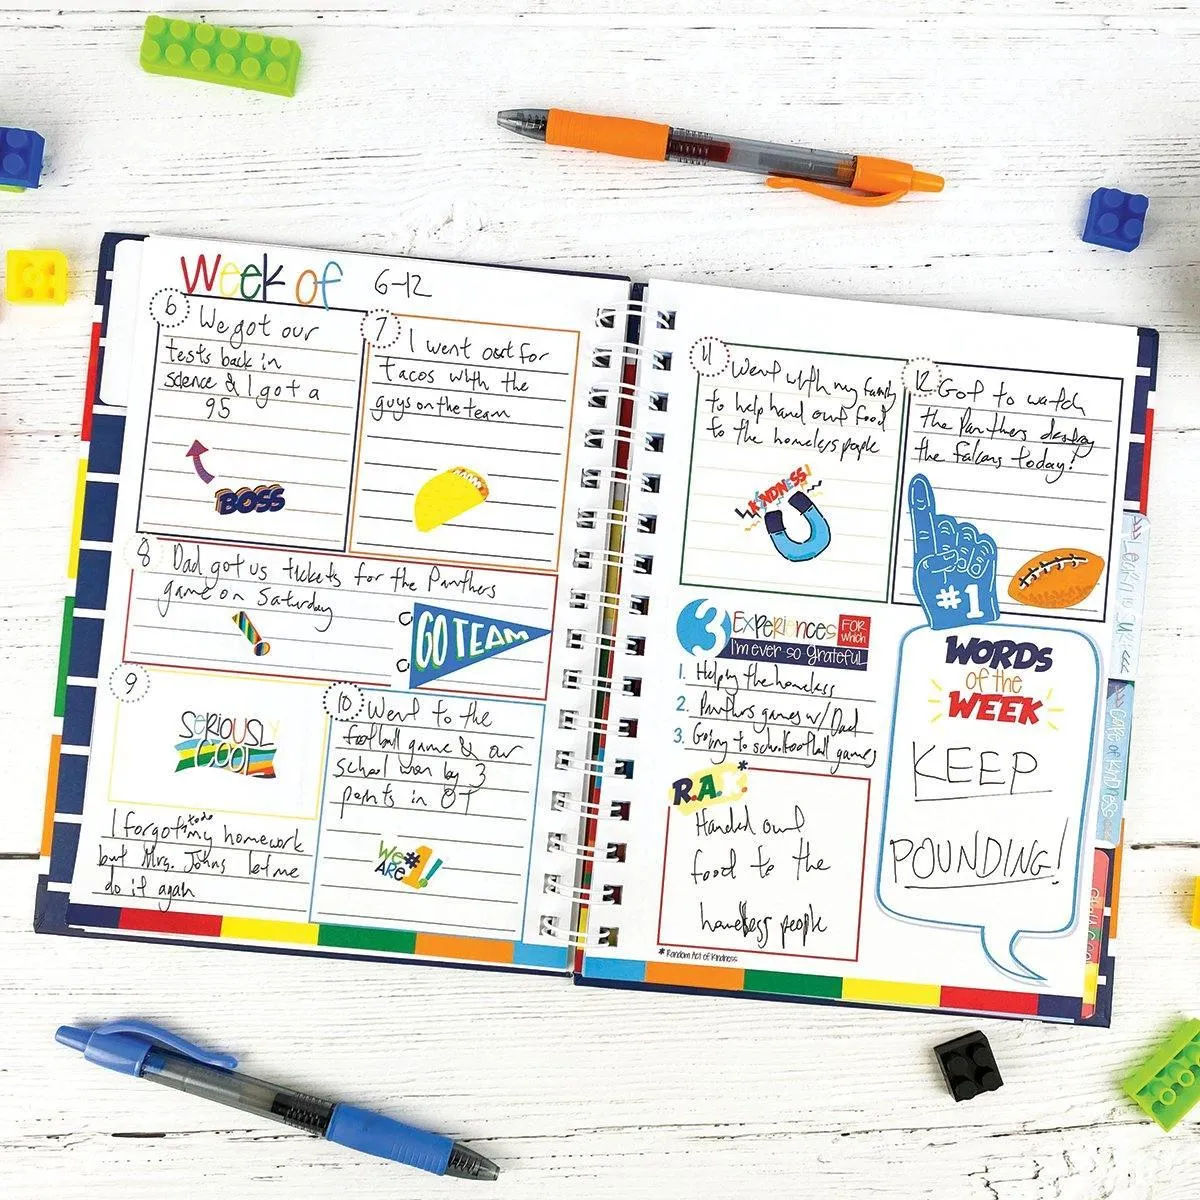 Week of 6-12
6 We got our
tests back in
science & I got a
95
BOSS
7 I went out for
tacos with the
guys on the team
8 Dad got us tickets for the Panthers
game on Saturday
GO TEAM
9
SERIOUSLY
COOL
I forgot to do my homework
but Mrs. Johns let me
do it again
10 Went to the
football game & our
school won by 3
points in OT
We
ARE #1!
11 Went with my family
to help hand out food
to the homeless people
KINDNESS!
12 Got to watch
the Panthers destroy
the Falcons today!
#1
3 EXPERIENCES FOR which
I'm ever so grateful
1. Helping the homeless
2. Panthers games w/ Dad
3. Going to school football games
R.A.K.*
Handed out
food to the
homeless people
* Random Act of Kindness
WORDS
of the
WEEK
KEEP
POUNDING!